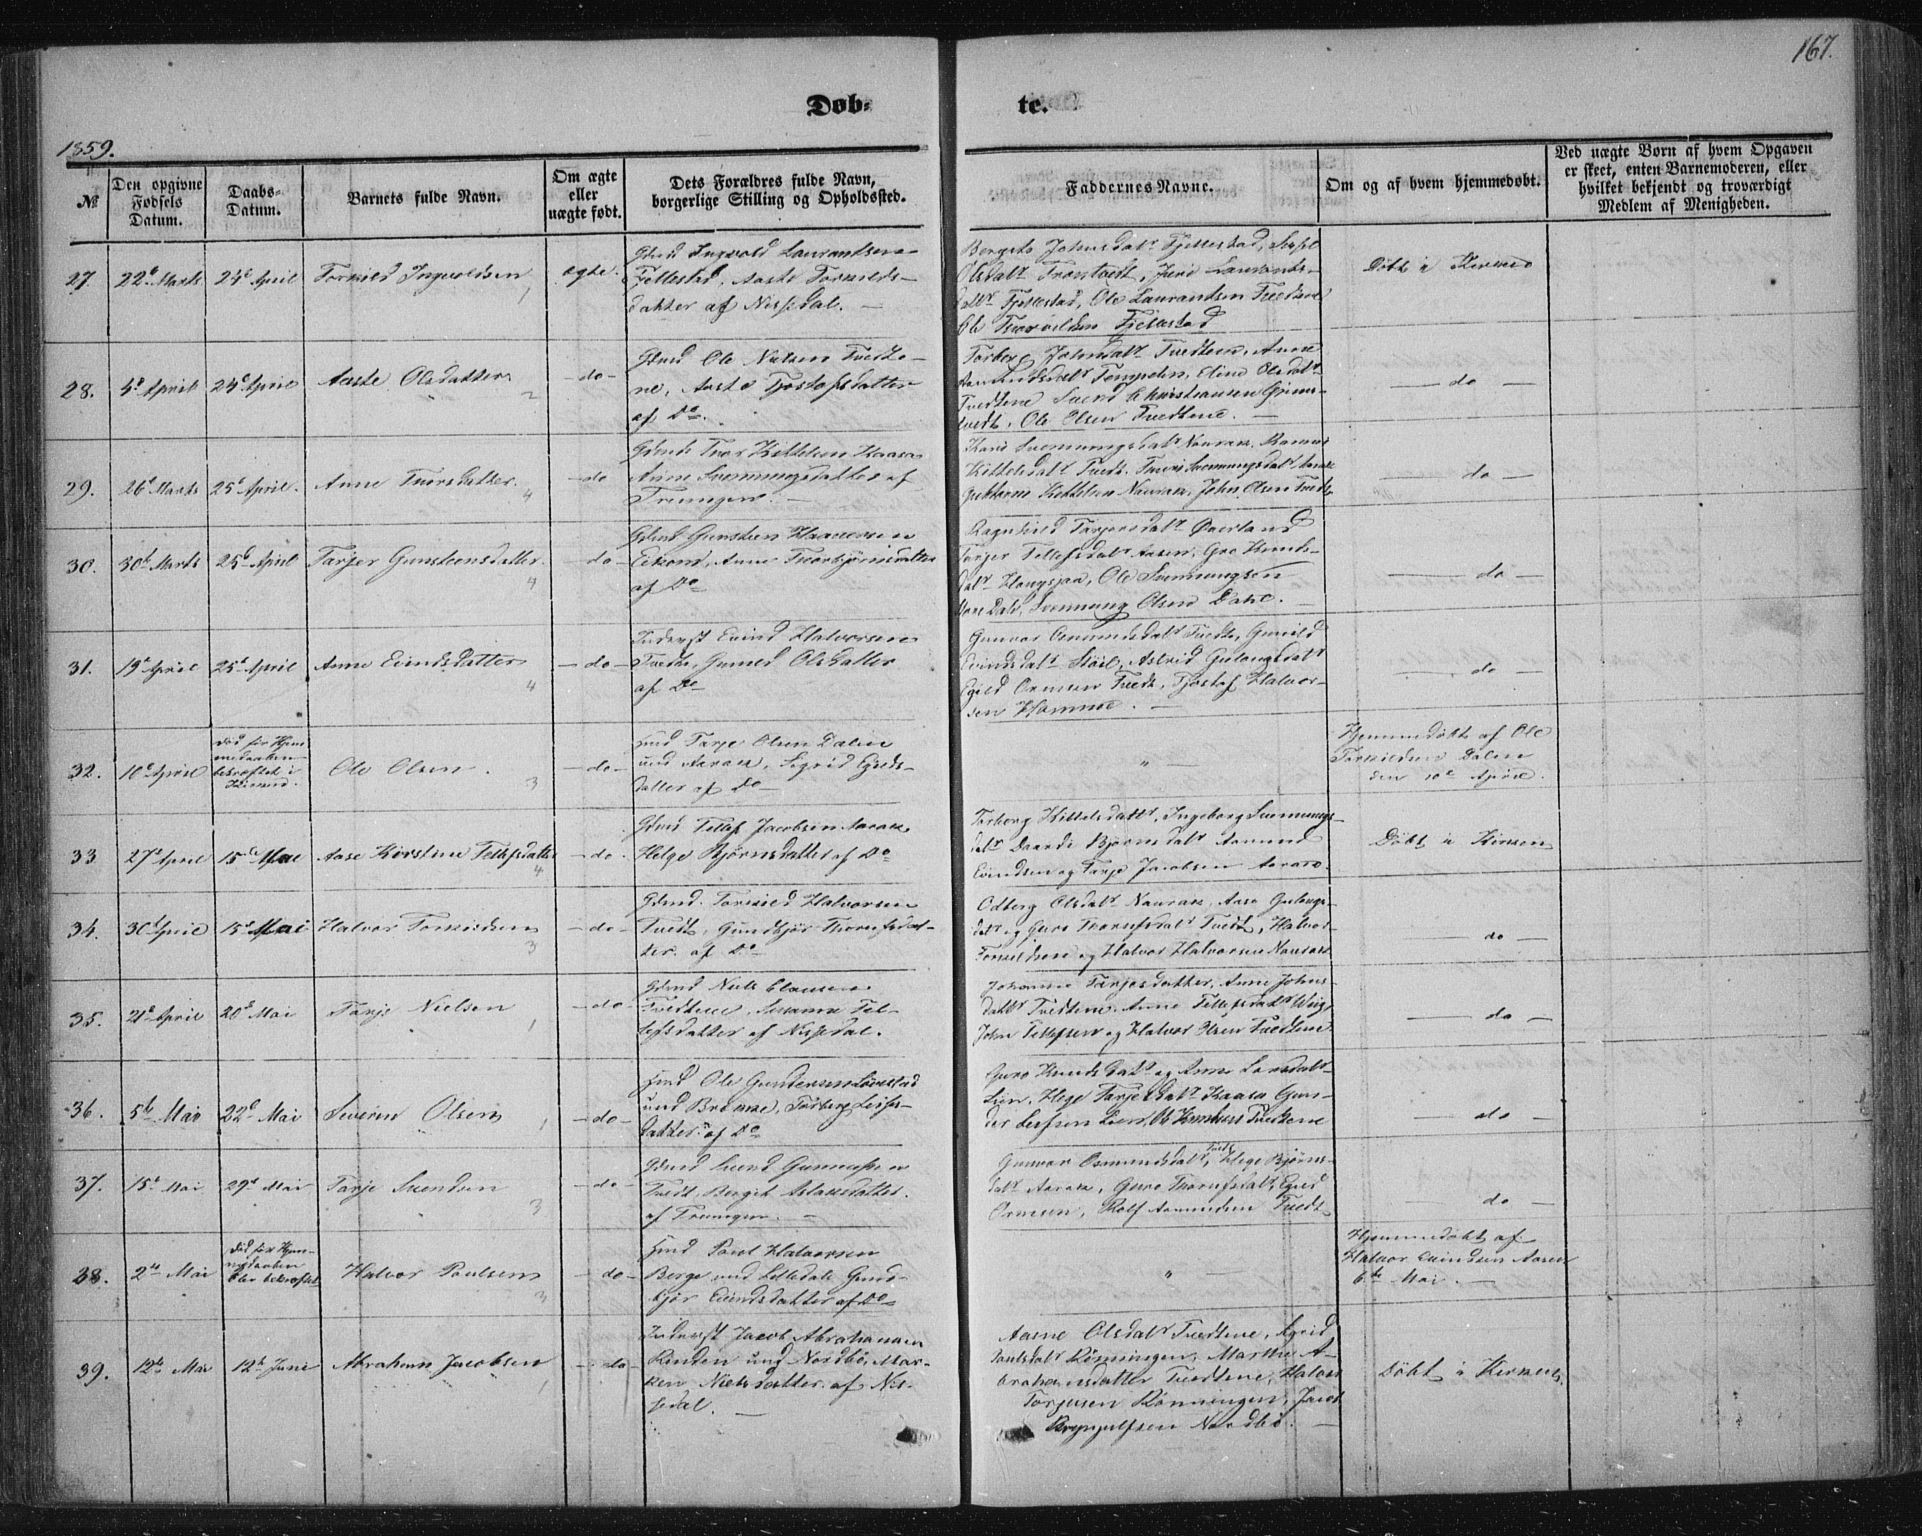 167.
Døb-
te.
1859.
№
Den opgivne Fødsels Datum.
Daabs-Datum.
Barnets fulde Navn.
Om ægte eller uægte født.
Dets Forældres fulde Navn, borgerlige Stilling og Opholdssted.
Faddernes Navne.
Om og af hvem hjemmedøbt.
Ved uægte Børn af hvem Opgaven er skeet, enten Barnemoderen, eller hvilket bekjendt og troværdigt Medlem af Menigheden.
27. 22d Marts 24d April Torkild Ingvoldsen 1 ægte.
Gmd Ingvold Laurandsen
Fjellestad, Aaste Torkilds-
datter af Nissedal. —
Bergit Johnsdatr Fjellestad,
Olsdatr Trontvedt, Laurants-
datr Fjellestad, Ole Laurandsen Tvedtene
Ole Fjellestad
Døbt i Kirken
28. 4d April 24d April Aaste Olsdatter 2 — do —
Gmd Ole Nielsen Tvedte-
ne, Aaste Tjostolfsdatter
af Do.
Torberg Johnsdatr Tvedtene, Anne
Aamundsdatr Eline Olsdatr
Tvedtene Svend Christiansen Grims-
tvedt, Ole Olsen Tvedtene. —
— do —
29. 26d Marts 25d April. Anne Thorsdatter. 4 — do
Gmd Thor Kittelsen Kaasa
Anne Svennungsdatter af
Treungen —
Kari Svennungsdatr Naurak,
Kittelsdatr Tvedt. Svennungsdatr
Kittelsen Naurak, John Olsen Tvedt
— do —
30. 30d Marts 25d April Tarjer Gunsteensdatter 4 — do —
Gmd Gunsten Haavesen
Eikom, Anne Thorbjørnsdatter
af Do
Ragnhild Tarjersdatr Øverland
Tarjer Tellefsdatr Aasen, Gro Knuds-
datr Haugsjaa, Ole Svennungsen
Svennung Olsen Dale. —
— do —
31. 19d April 25d April Anne Eivindsdatter 4 — do —
Inderst Eivind Halvorsen
Tvedt, Gunild Olsdatter
af Do
Gunvor Osmundsdatr Tvedt, Gunild
Eivindsdatr Støil, Astrid Gulaugsdatr
Egild Ormsen Tvedt, Tjostolf Halvor-
sen Hamme. —
— do —
32. 10d April død før Hjem-
medaaben
bekræftet i
Kirken. Ole Olsen. 3 — do —
Hmd Tarje Olsen Dalen
und Aarak, Sigrid
datter af Do
" —
Hjemmedøbt af Ole
Torkildsen Dalen
den 10d April.
33. 27d April 15d Mai Aase Kirstine Tellefsdatter 4 — do.
Gmd Tellef Jacobsen Aarak
Helge Bjørnsdatter af Do
Torberg Kittelsdatr, Ingeborg Svennungs-
datr Daardi Bjørnsdatr Aamund
Eivindsen og Tarje Jacobsen Aarak.
Døbt i Kirken
34. 30d April 15d Mai Halvor Torkildsen 3 — do —
Gmd. Torkild Halvorsen
Tvedt, Gundbjør Thorufsdat-
ter. af Do
Odberg Olsdatr Naurak, Aase Gulaugs-
datr og Guro Thorufsdatr Tvedt, Halvor
Torkildsen og Halvor Halvorsen Naurak
— do —
35. 21d April 20d Mai Tarje Nielsen 1 — do —
Gmd Niels Clausen
Tvedtene, Susanne Tel-
lefsdatter af Nissedal.
Johanne Tarjesdatter, Anne Johns-
datr Tvedtene. Anne Tellefsdatr
John Tellefsen og Halvor Olsen Tvedtene.
— do —
36. 5te Mai 22d Mai Severin Olsen 1 — do —
Hmd Ole Gundersen Løvestad
und Torberg
datter. af Do
Guro Knudsdatr og Anne Larsdatr
Lien, Hege Tarjesdatr Kaasa Gun-
der Leifsen Lien, Ole Knudsen Tvedtene
— do —
37. 15d Mai 29d Mai Tarje Svendsen 3 — do —
Gmd Svend Gunnufsen
Tvedt, Bergit Aslaksdatter.
af Treungen. —
Gunvor Osmundsdatr Tvedt, Hege Bjørns-
datr Aarak, Guro Thorufsdatr, Egild
Ormsen, Rolf Aamundsen Tvedt
— do
38. 2den Mai død før Hjem-
medaaben
blev bekræftet Halvor Paulsen 3 — do —
Hmd Povl Halvorsen
Berge und Lilledale Gund-
bjør Eivindsdatter af Do
" —
Hjemmedøbt af
Halvor Eivindsen Aasen
6te Mai. —
39. 12te Mai 12te Juni Abraham Jacobsen 1 — do
Inderst Jacob Abrahamsen
Rinden und Nordbø, Mar-
ken Nielsdatter. af Nis-
sedal. —
Aasne Olsdatr Tvedtene, Sigrid
Paulsdatr Rønningen, Marthe A-
brahamsdatter Tvedtene, Halvor
Torjusen Rønningen, Jacob
Brynjulfsen Nordbø. —
Døbt i Kirken.